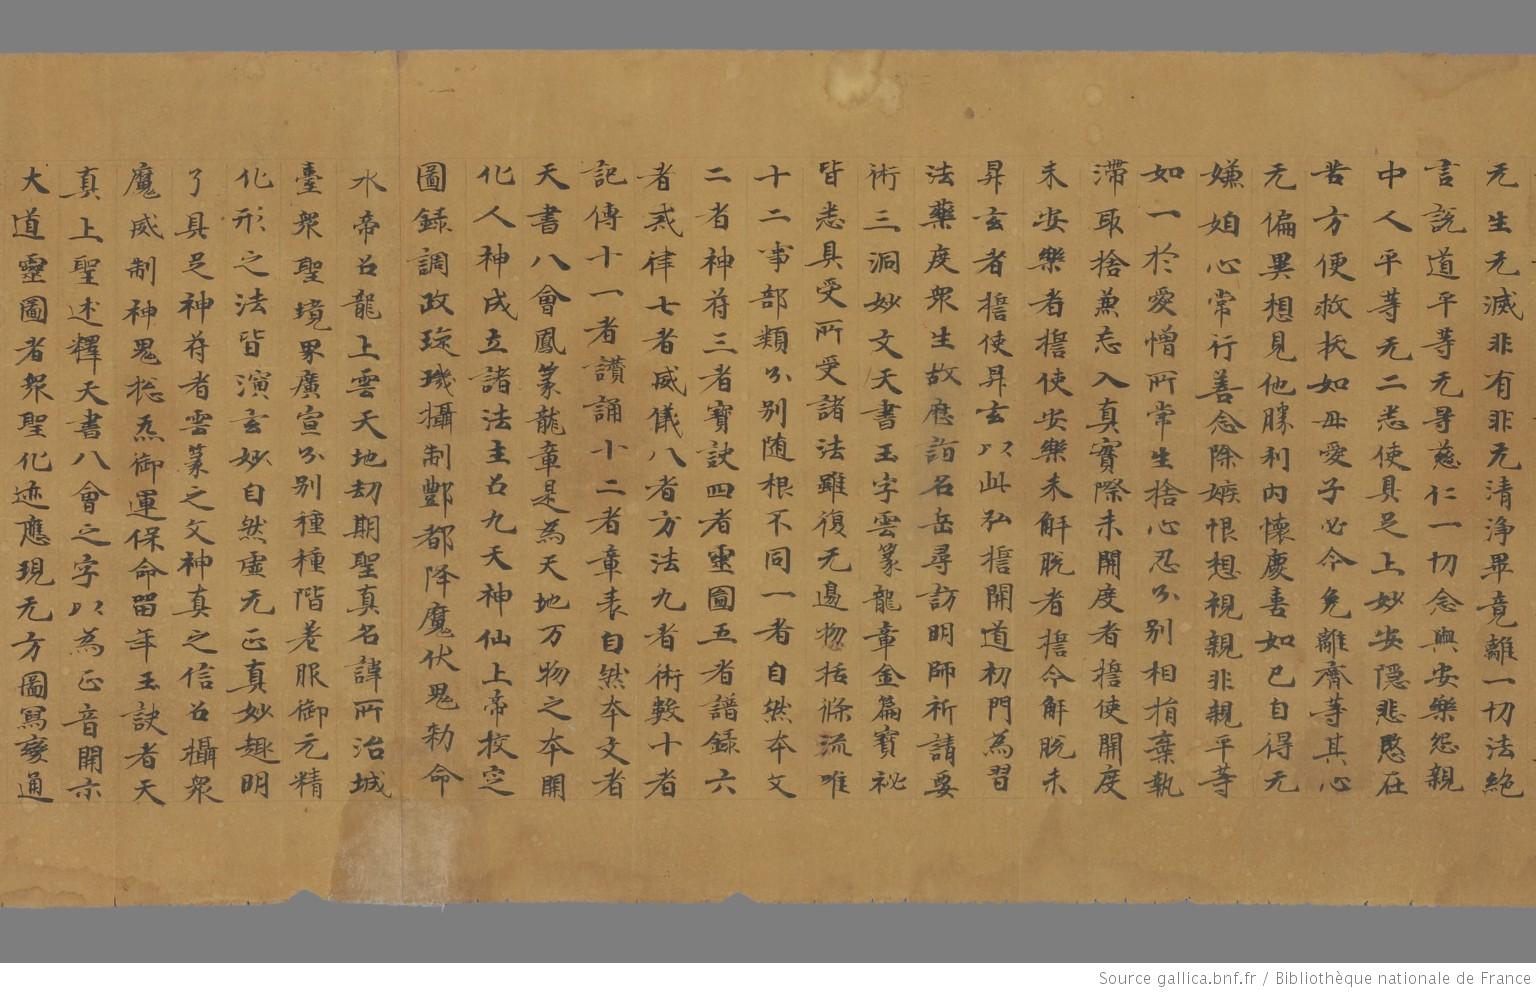 无生无滅非有非无清淨畢竟離一切法絶
言說道平等无㝵慈仁一切念與安樂怨親
中人平等无二悉使具足上妙安隱悲愍在
苦方便救扶如母愛子必令免離齊等其心
无偏異想見他勝利內懷慶喜如已自得无
嫌妲心常行善念除嫉恨想視親非親平等
如一於愛憎所常生捨心忍分別相捐棄執
滯取捨兼忘入真實際未開度者擔使開度
未安樂者擔使安樂未解脫者擔令解脫未
昇玄者擔使昇玄以此弘擔開道初門為習
法藥度衆生故應詣名岳尋訪明師祈請要
術三洞妙文天書玉字雲篆龍章金篇寶祕
皆悉具受所受諸法雖復无邊物括條流唯
十二事部類分別随根不同一者自然本文
二者神苻三者寶訣四者靈圖五者譜録六
者戒律七者威儀八者方法九者術數十者
記傳十一者讚誦十二者章表自然本文者
天書八會鳳篆龍章是為天地万物之本開
化人神成立諸法主召九天神仙上帝校定
圖録調政琁璣攝制酆都降魔伏鬼勑命
水帝召龍上雲天地劫期聖真名諱所治城
臺衆聖境界廣宣分別種種階差服御元精
化形之法皆演玄妙自然虛无正真妙趣明
了具足神苻者雲篆之文神真之信召攝衆
魔威制神鬼惣炁御運保命留年玉訣者天
真上聖述釋天書八會之字以為正音開示
大道靈圖者衆聖化迹應現无方圖寫變通
Source gallica.bnf.fr / Bibliothèque nationale de France